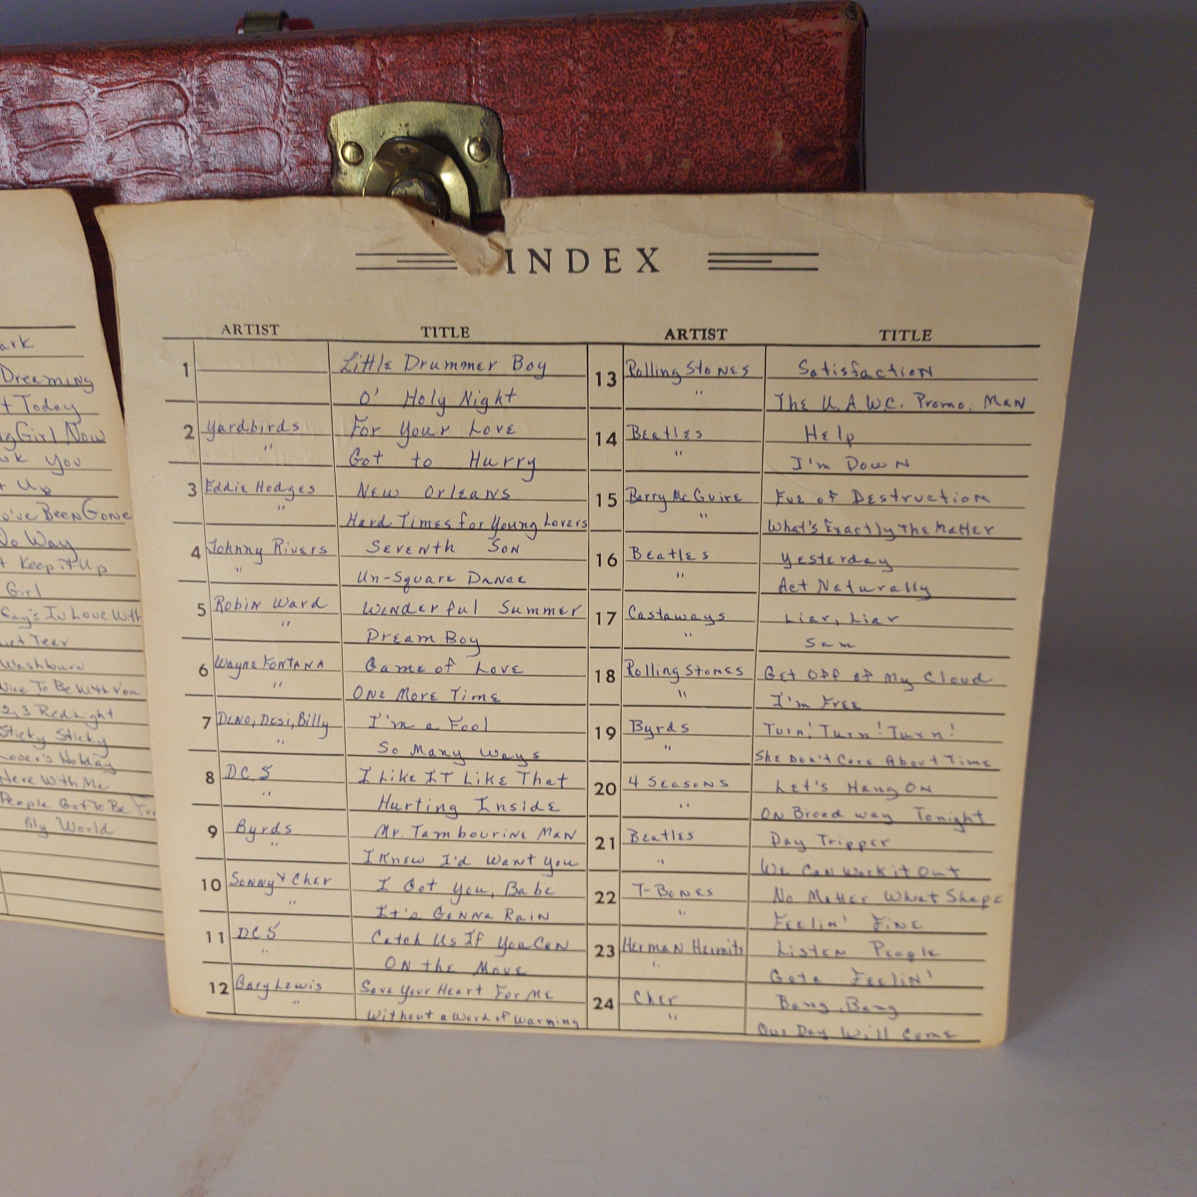 ark
Dreaming
t Today
Girl Now
You
Up
've Been Gone
No Way
t Keep it Up
Girl
Ray's In Love With
et Teer
Washburn
Due To Be With You
2, 3 Redlight
Sticky Sticky
Lover's Holiday
Here With Me
People Got To Be Fre
My World
INDEX
ARTIST TITLE ARTIST TITLE
1 Little Drummer Boy
O' Holy Night
2 Yardbirds For Your Love
" Got to Hurry
3 Eddie Hodges New Orleans
" Hard Times for Young Lovers
4 Johnny Rivers Seventh Son
" Un-Square Dance
5 Robin Ward Wonderful Summer
" Dream Boy
6 Wayne Fontana Game of Love
" One More Time
7 Deno, Desi, Billy I'm a Fool
" So Many Ways
8 DC 5 I Like IT Like That
" Hurting Inside
9 Byrds Mr. Tambourine Man
" I Knew I'd Want You
10 Sonny & Cher I Got You, Babe
" It's Gonna Rain
11 DC 5 Catch Us If You Can
" On the Move
12 Gary Lewis Save Your Heart For Me
" Without a Word of Warning
13 Rolling Stones Satisfaction
" The U.A.W.C. Promo. Man
14 Beatles Help
" I'm Down
15 Barry McGuire Eve of Destruction
" What's Exactly The Matter
16 Beatles Yesterday
" Act Naturally
17 Castaways Liar, Liar
" Sam
18 Rolling Stones Get Off of My Cloud
" I'm Free
19 Byrds Turn! Turn! Turn!
" She Don't Care About Time
20 4 Seasons Let's Hang On
" On Broadway Tonight
21 Beatles Day Tripper
" We Can Work it Out
22 T-Bones No Matter What Shape
" Feelin' Fine
23 Herman Hermits Listen People
" Gota Feelin'
24 Cher Bang, Bang
" Our Day Will Come